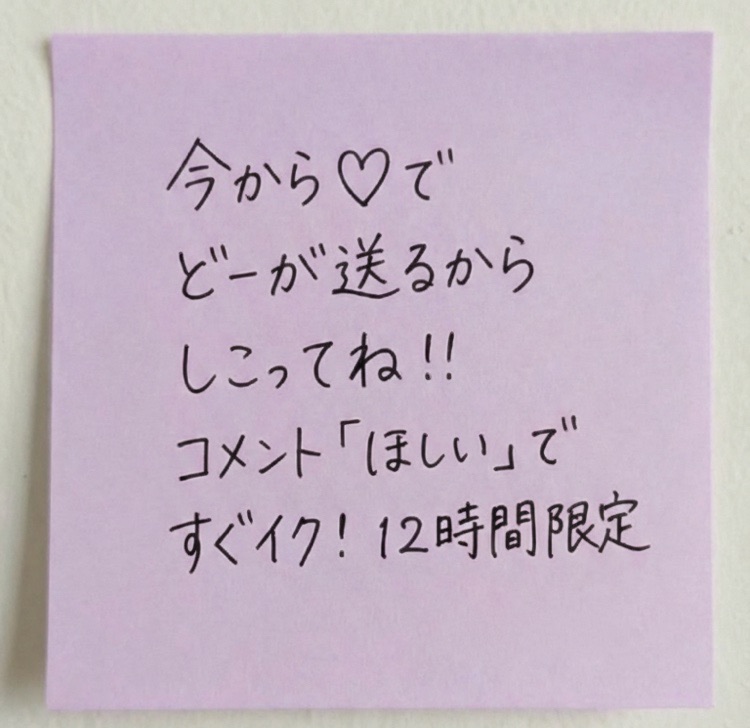 今から♡で
どーが送るから
しこってね!!
コメント「ほしい」で
すぐイク! 12時間限定